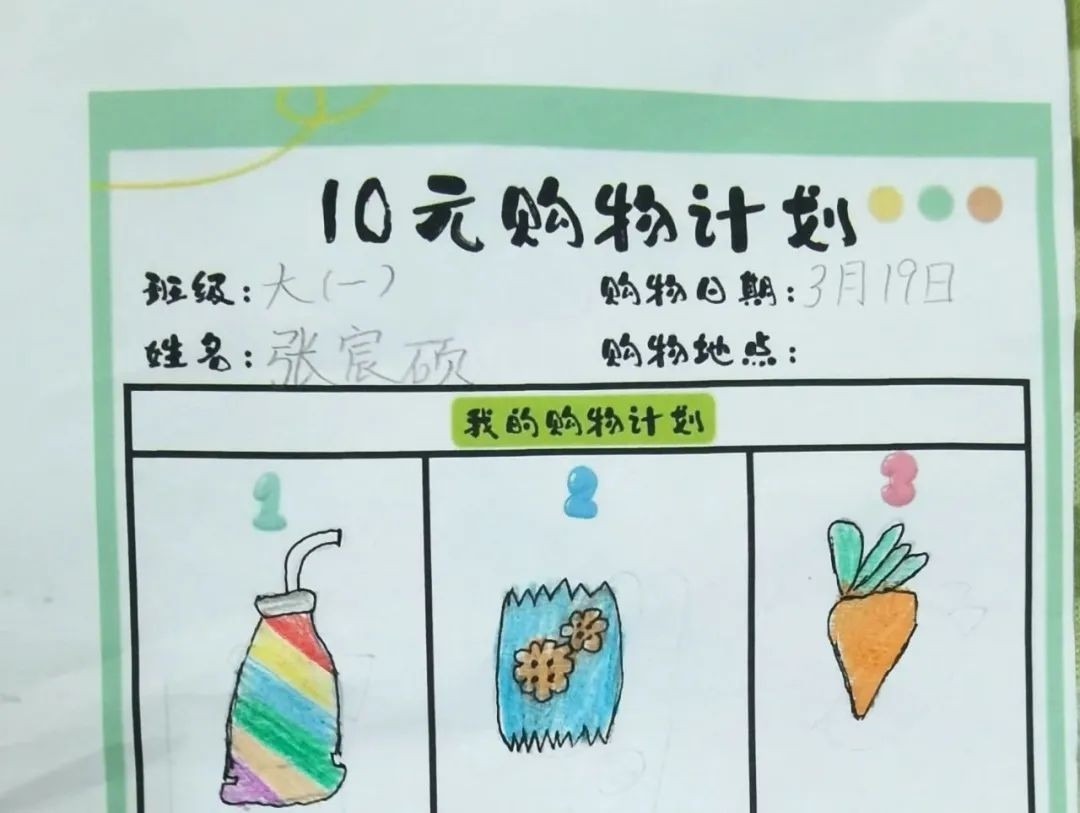 10元购物计划
班级:大(一) 购物日期:3月19日
姓名:张宸硕 购物地点:
我的购物计划
1 2 3